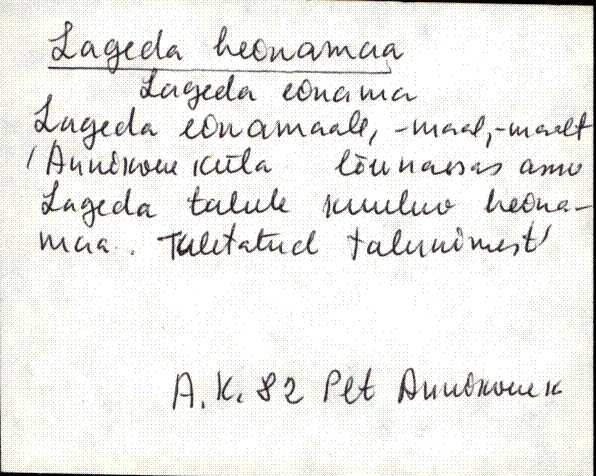 Lageda heonamaa
Lageda eonama
Lageda eonamaale, -maal, -maalt
/Annikoru küla lõunaosas asuv
Lageda talule kuuluv heona-
maa. Tuletatud talunimest/
A.K. 82 Plt Annikoru k